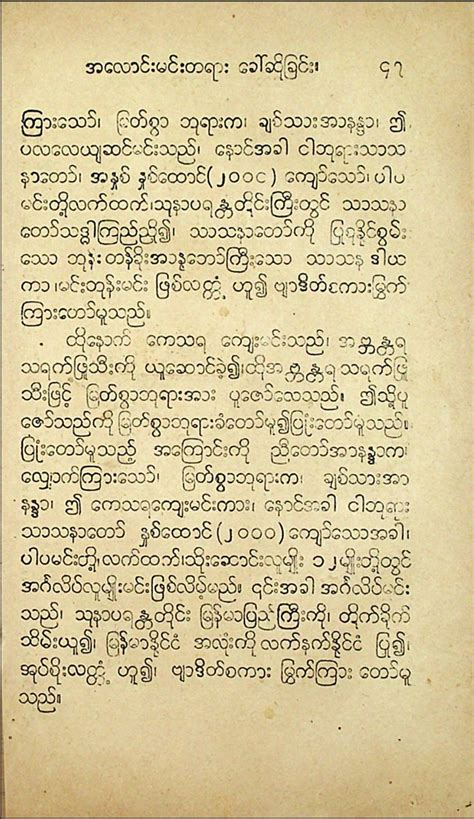 အလောင်းမင်းတရား ခေါ်ဆိုခြင်း။ ၄၇
ကြားသော်၊ မြတ်စွာ ဘုရားက၊ ချစ်သားအာနန္ဒာ၊ ဤ
ပလလေယျဆင်မင်းသည်၊ နောင်အခါ ငါဘုရားသာသ
နာတော်၊ အနှစ် နှစ်ထောင်(၂၀၀၀) ကျော်သော်၊ ပါပ
မင်းတို့လက်ထက်၊သုနာပရန္တတိုင်းကြီးတွင် သာသနာ
တော်သဒ္ဓါကြည်ညို၍၊ သာသနာတော်ကို ပြုစုနိုင်စွမ်း
သော ဘုန်းတန်ခိုးအာနုဘော်ကြီးသော သာသန ဒါယ
ကာ၊မင်းဘုန်းမင်း ဖြစ်လတ္တံ့ ဟူ၍ ဗျာဒိတ်စကားမြွက်
ကြားတော်မူသည်။
ထိုနောက် ကေသရ ကျေးမင်းသည်၊ အဗ္ဘန္တရ
သရက်ဖြူသီးကို ယူဆောင်ခဲ့၍၊ထိုအဗ္ဘန္တရ သရက်ဖြူ
သီးဖြင့် မြတ်စွာဘုရားအား ပူဇော်လေသည်။ ဤသို့ပူ
ဇော်သည်ကိုမြတ်စွာဘုရားခံတော်မူ၍ပြုံးတော်မူသည်။
ပြုံးတော်မူသည့် အကြောင်းကို ညီတော်အာနန္ဒာက၊
လျှောက်ကြားသော်၊ မြတ်စွာဘုရားက၊ ချစ်သားအာ
နန္ဒာ၊ ဤ ကေသရကျေးမင်းကား၊ နောင်အခါ ငါဘုရား
သာသနာတော် နှစ်ထောင် (၂၀၀၀) ကျော်သောအခါ၊
ပါပမင်းတို့၊လက်ထက်၊သိုးဆောင်းလူမျိုး ၁၂မျိုးတို့တွင်
အင်္ဂလိပ်လူမျိုးမင်းဖြစ်လိမ့်မည်။ ၎င်းအခါ အင်္ဂလိပ်မင်း
သည်၊ သုနာပရန္တတိုင်း မြန်မာပြည်ကြီးကို၊ တိုက်ခိုက်
သိမ်းယူ၍၊ မြန်မာနိုင်ငံ အလုံးကို လက်နက်နိုင်ငံ ပြု၍၊
အုပ်စိုးလတ္တံ့ ဟူ၍၊ ဗျာဒိတ်စကား မြွက်ကြား တော်မူ
သည်။